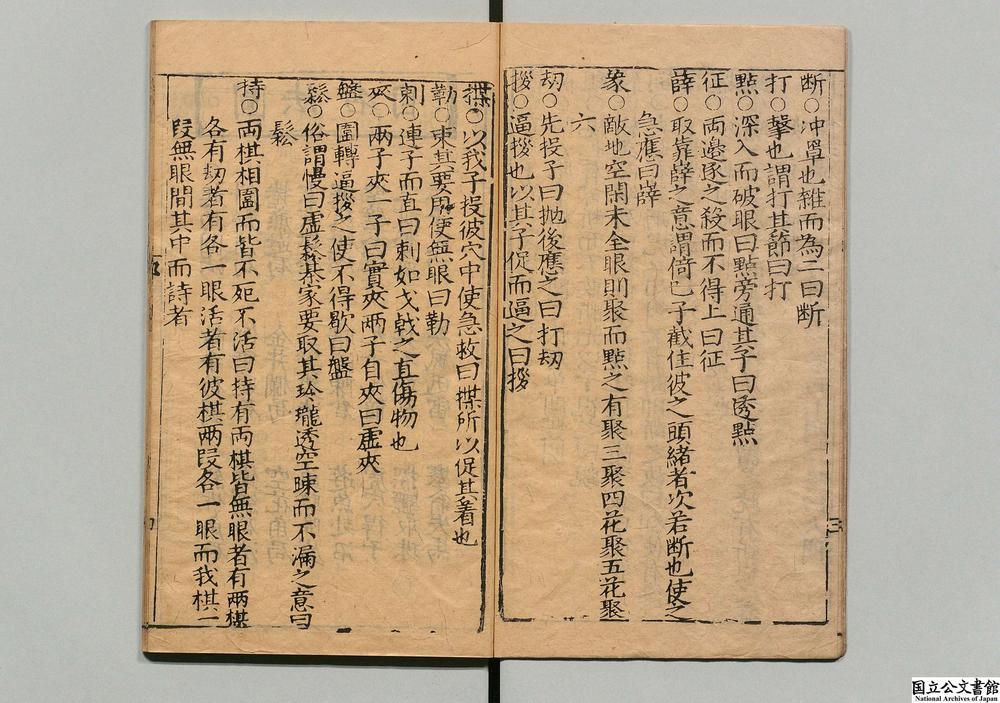 断○冲單也雖而為二曰断
打○擊也謂打其節曰打
點○深入而破眼曰點旁通其子曰透點
征○両邉逐之殺而不得上曰征
薜○取靠薜之意謂倚己子截住彼之頭緒者次若断也使之
急應曰薜
聚○敵地空閑未全眼則聚而點之有聚三聚四花聚五花聚
六
刧○先投子曰抛後應之曰打刧
拶○逼拶也以其子促而逼之曰拶
揲○以我子投彼穴中使急救曰揲所以促其着也
勒○束其要用便無眼曰勒
刺○連子而直曰刺如戈戟之直傷物也
夾○両子夾一子曰實夾両子自夾曰虚夾
盤○圍轉逼拶之使不得歇曰盤
鬆○俗謂慢曰虚鬆棊家要取其玲瓏透空踈而不漏之意曰
鬆
持○両棋相圍而皆不死不活曰持有両棋皆無眼者有両棋
各有刧者有各一眼活者有彼棋両段各一眼而我棋一
段無眼間其中而詩者
国立公文書館
National Archives of Japan